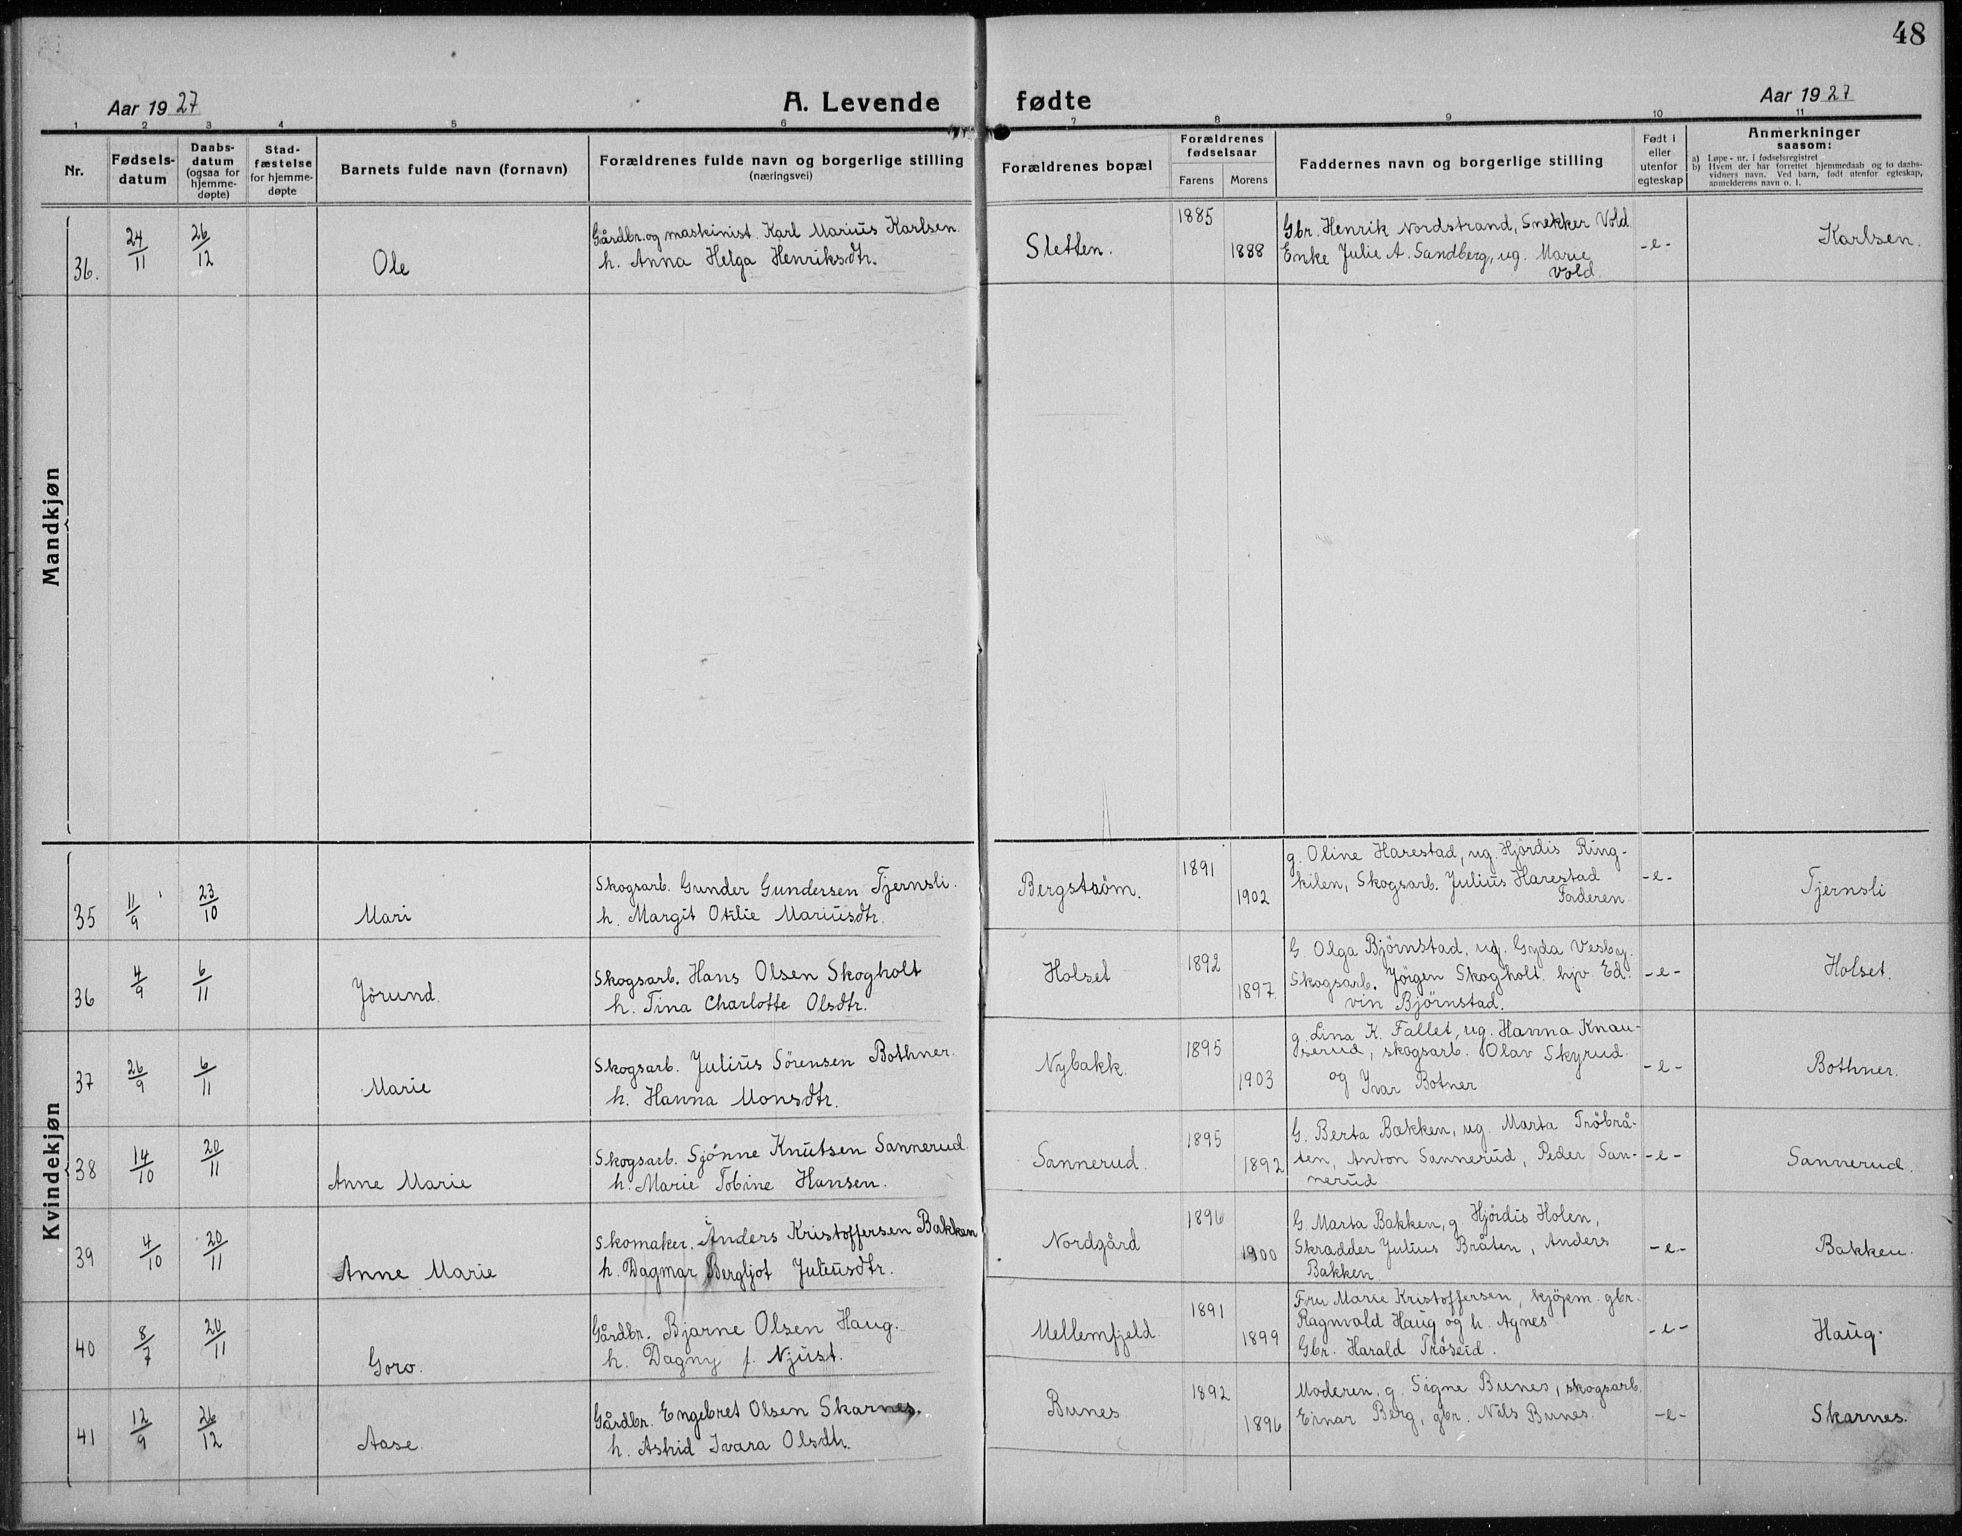 48
Aar 1927
A. Levende fødte
Aar 1927
1 2 3 4 5 6 7 8 9 10 11
Nr.
Fødsels-
datum
Daabs-
datum
(ogsaa for
hjemme-
døpte)
Stad-
fæstelse
for hjemme-
døpte
Barnets fulde navn (fornavn)
Forældrenes fulde navn og borgerlige stilling
(næringsvei)
Forældrenes bopæl
Forældrenes
fødselsaar
Farens Morens
Faddernes navn og borgerlige stilling
Født i
eller
utenfor
egteskap
Anmerkninger
saasom:
a) Løpe-nr. i fødselsregistret
b) Hvem der har forrettet hjemmedaab og to daabs-
vidners navn. Ved barn, født utenfor egteskap,
anmelderens navn o. l.
Mandkjøn
36. 24/11 26/12 Ole
Gårdbr. og maskinist Karl Marius Karlsen
h. Anna Helga Henriksdtr.
Sletten. 1885 1888
Gbr. Henrik Nordstrand, Snekker Vold
Enke Julie A. Sandberg, ug. Marie
Vold.
-e- Karlsen.
Kvindekjøn
35 11/9 23/10 Mari
Skogsarb. Gunder Gundersen Tjernsli.
h. Margit Otilie Mariusdtr.
Bergstrøm. 1891 1902
g. Oline Harestad, ug. Hjördis Ring-
kilen, Skogsarb. Julius Harestad
Faderen
-e- Tjernsli
36 4/9 6/11 Jörund.
Skogsarb. Hans Olsen Skogholt
h. Tina Charlotte Olsdtr.
Holset 1892 1897
G. Olga Björnstad, ug. Gyda Vesby.
Skogsarb. Jörgen Skogholt hjv. Ed-
vin Björnstad.
-e- Holset.
37 26/9 6/11 Marie
Skogsarb. Julius Sörensen Bothner.
h. Hanna Monsdtr.
Nybakk. 1895 1903
g. Lina K. Fallet, ug. Hanna Knau-
serud, skogsarb. Olav Skyrud
og Ivar Botner
-e- Bothner.
38 14/10 20/11 Anne Marie
Skogsarb. Sjönne Knutsen Sannerud
h. Marie Tobine Hansen.
Sannerud. 1895 1892
G. Berta Bakken, ug. Marta Tröbrå-
ten, Anton Sannerud, Peder San-
nerud
-e- Sannerud.
39 4/10 20/11 Anne Marie
Skomaker. Anders Kristoffersen Bakken
h. Dagmar Bergljot Juliusdtr.
Nordgård 1896 1900
G. Marta Bakken, g Hjördis Holen,
Skradder Julius Bråten, Anders
Bakken
-e- Bakken.
40 8/7 20/11 Goro.
Gårdbr. Bjarne Olsen Haug.
h. Dagny f. Njust.
Mellemfjeld. 1891 1899
Fru Marie Kristoffersen, kjöpm. gbr.
Ragnvald Haug og h. Agnes
Gbr. Harald Tröseid.
-e- Haug.
41 12/9 26/12 Aase.
Gårdbr. Engebret Olsen Skarnes.
h. Astrid Ivara Olsdtr.
Bunes 1892 1896
Moderen, g. Signe Bunes, skogsarb.
Einar Berg, gbr. Nils Bunes.
-e- Skarnes.